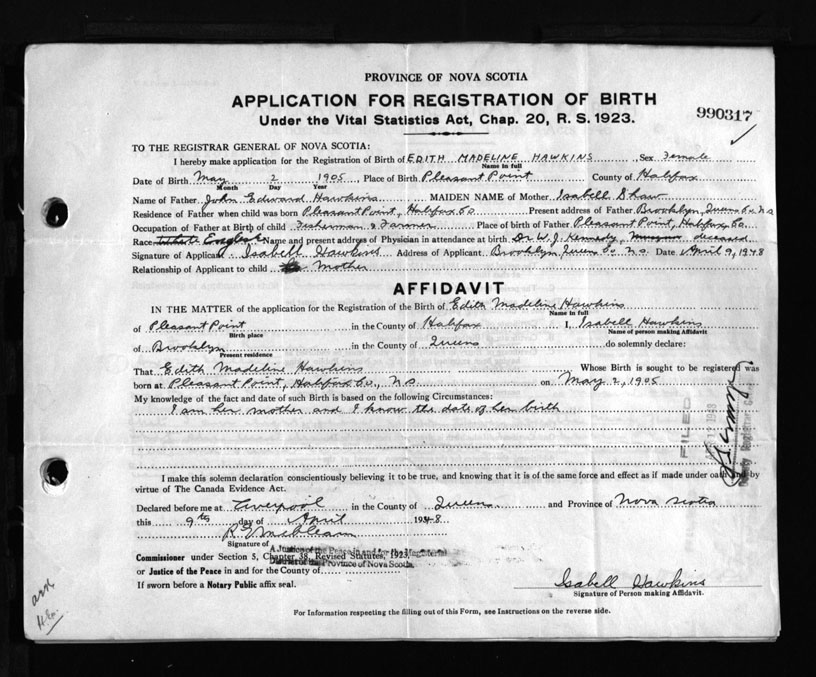 PROVINCE OF NOVA SCOTIA
APPLICATION FOR REGISTRATION OF BIRTH
Under the Vital Statistics Act, Chap. 20, R. S. 1923.
990317
TO THE REGISTRAR GENERAL OF NOVA SCOTIA:
I hereby make application for the Registration of Birth of EDITH MADELINE HAWKINS, Sex Female
Name in full
Date of Birth May 2 1905, Place of Birth Pleasant Point County of Halifax
Month Day Year
Name of Father John Edward Hawkins MAIDEN NAME of Mother Isabell Shaw
Residence of Father when child was born Pleasant Point, Halifax Co. Present address of Father Brooklyn, Queens Co. N.S
Occupation of Father at Birth of child Fisherman & Farmer Place of birth of Father Pleasant Point, Halifax Co.
Race White English Name and present address of Physician in attendance at birth Dr W. J. Kennedy, deceased
Signature of Applicant Isabell Hawkins Address of Applicant Brooklyn, Queens Co. N.S. Date April 9, 1948
Relationship of Applicant to child Mother
AFFIDAVIT
IN THE MATTER of the application for the Registration of the Birth of Edith Madeline Hawkins
Name in full
of Pleasant Point in the County of Halifax I, Isabell Hawkins
Birth place Name of person making Affidavit
of Brooklyn in the County of Queens do solemnly declare:
Present residence
That Edith Madeline Hawkins Whose Birth is sought to be registered was
born at Pleasant Point, Halifax Co., N.S on May 2, 1905
My knowledge of the fact and date of such Birth is based on the following Circumstances:
I am her mother and I know the date of her birth
FILED
I make this solemn declaration conscientiously believing it to be true, and knowing that it is of the same force and effect as if made under oath and by
virtue of The Canada Evidence Act.
Declared before me at Liverpool in the County of Queens and Province of Nova Scotia
this 9th day of April 1948
Signature of
A Justice of the Peace in and for the Magisterial
Commissioner under Section 3, Chapter 38, Revised Statutes, 1923,
District of the Province of Nova Scotia
or Justice of the Peace in and for the County of
If sworn before a Notary Public affix seal.
Isabell Hawkins
Signature of Person making Affidavit.
For Information respecting the filling out of this Form, see Instructions on the reverse side.